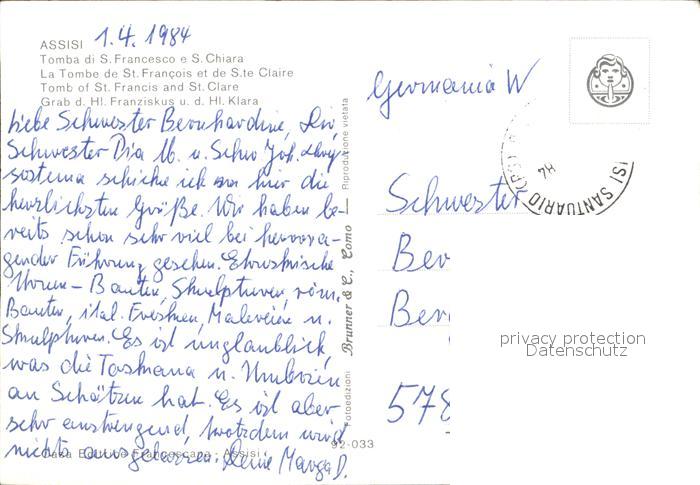 ASSISI 1.4.1984
Tomba di S. Francesco e S. Chiara
La Tombe de St. François et de S.te Claire
Tomb of St. Francis and St. Clare
Grab d. Hl. Franziskus u. d. Hl. Klara
Liebe Schwester Bernhardine,
Schwester Pia M. u. Schw Joh.
schicke ich von hier die
herzlichsten Grüße. Wir haben be-
reits schon sehr viel bei hervorra-
gender Führung gesehen. Etruskische
Urnen - Bauten, Skulpturen, röm.
Bauten, ital. Fresken, Malereien u.
Skulpturen. Es ist unglaublich,
was die Toskana u. Umbrien
an Schätzen hat. Es ist aber
sehr anstrengend, trotzdem wird
nichts ausgelassen. Deine Marga D.
Casa Editrice Francescana - Assisi
Fotoedizioni Brunner & C., Como — Riproduzione vietata
92-033
Germania W
ISI SANTUARIO
Schwester
Ber
Ber
578
privacy protection
Datenschutz